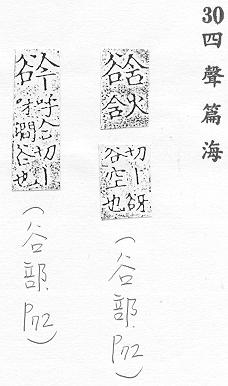 30四聲篇海
谽火含切丨谺谷空也
(谷部 P72)
呼含切丨谷也
(谷部 P72)